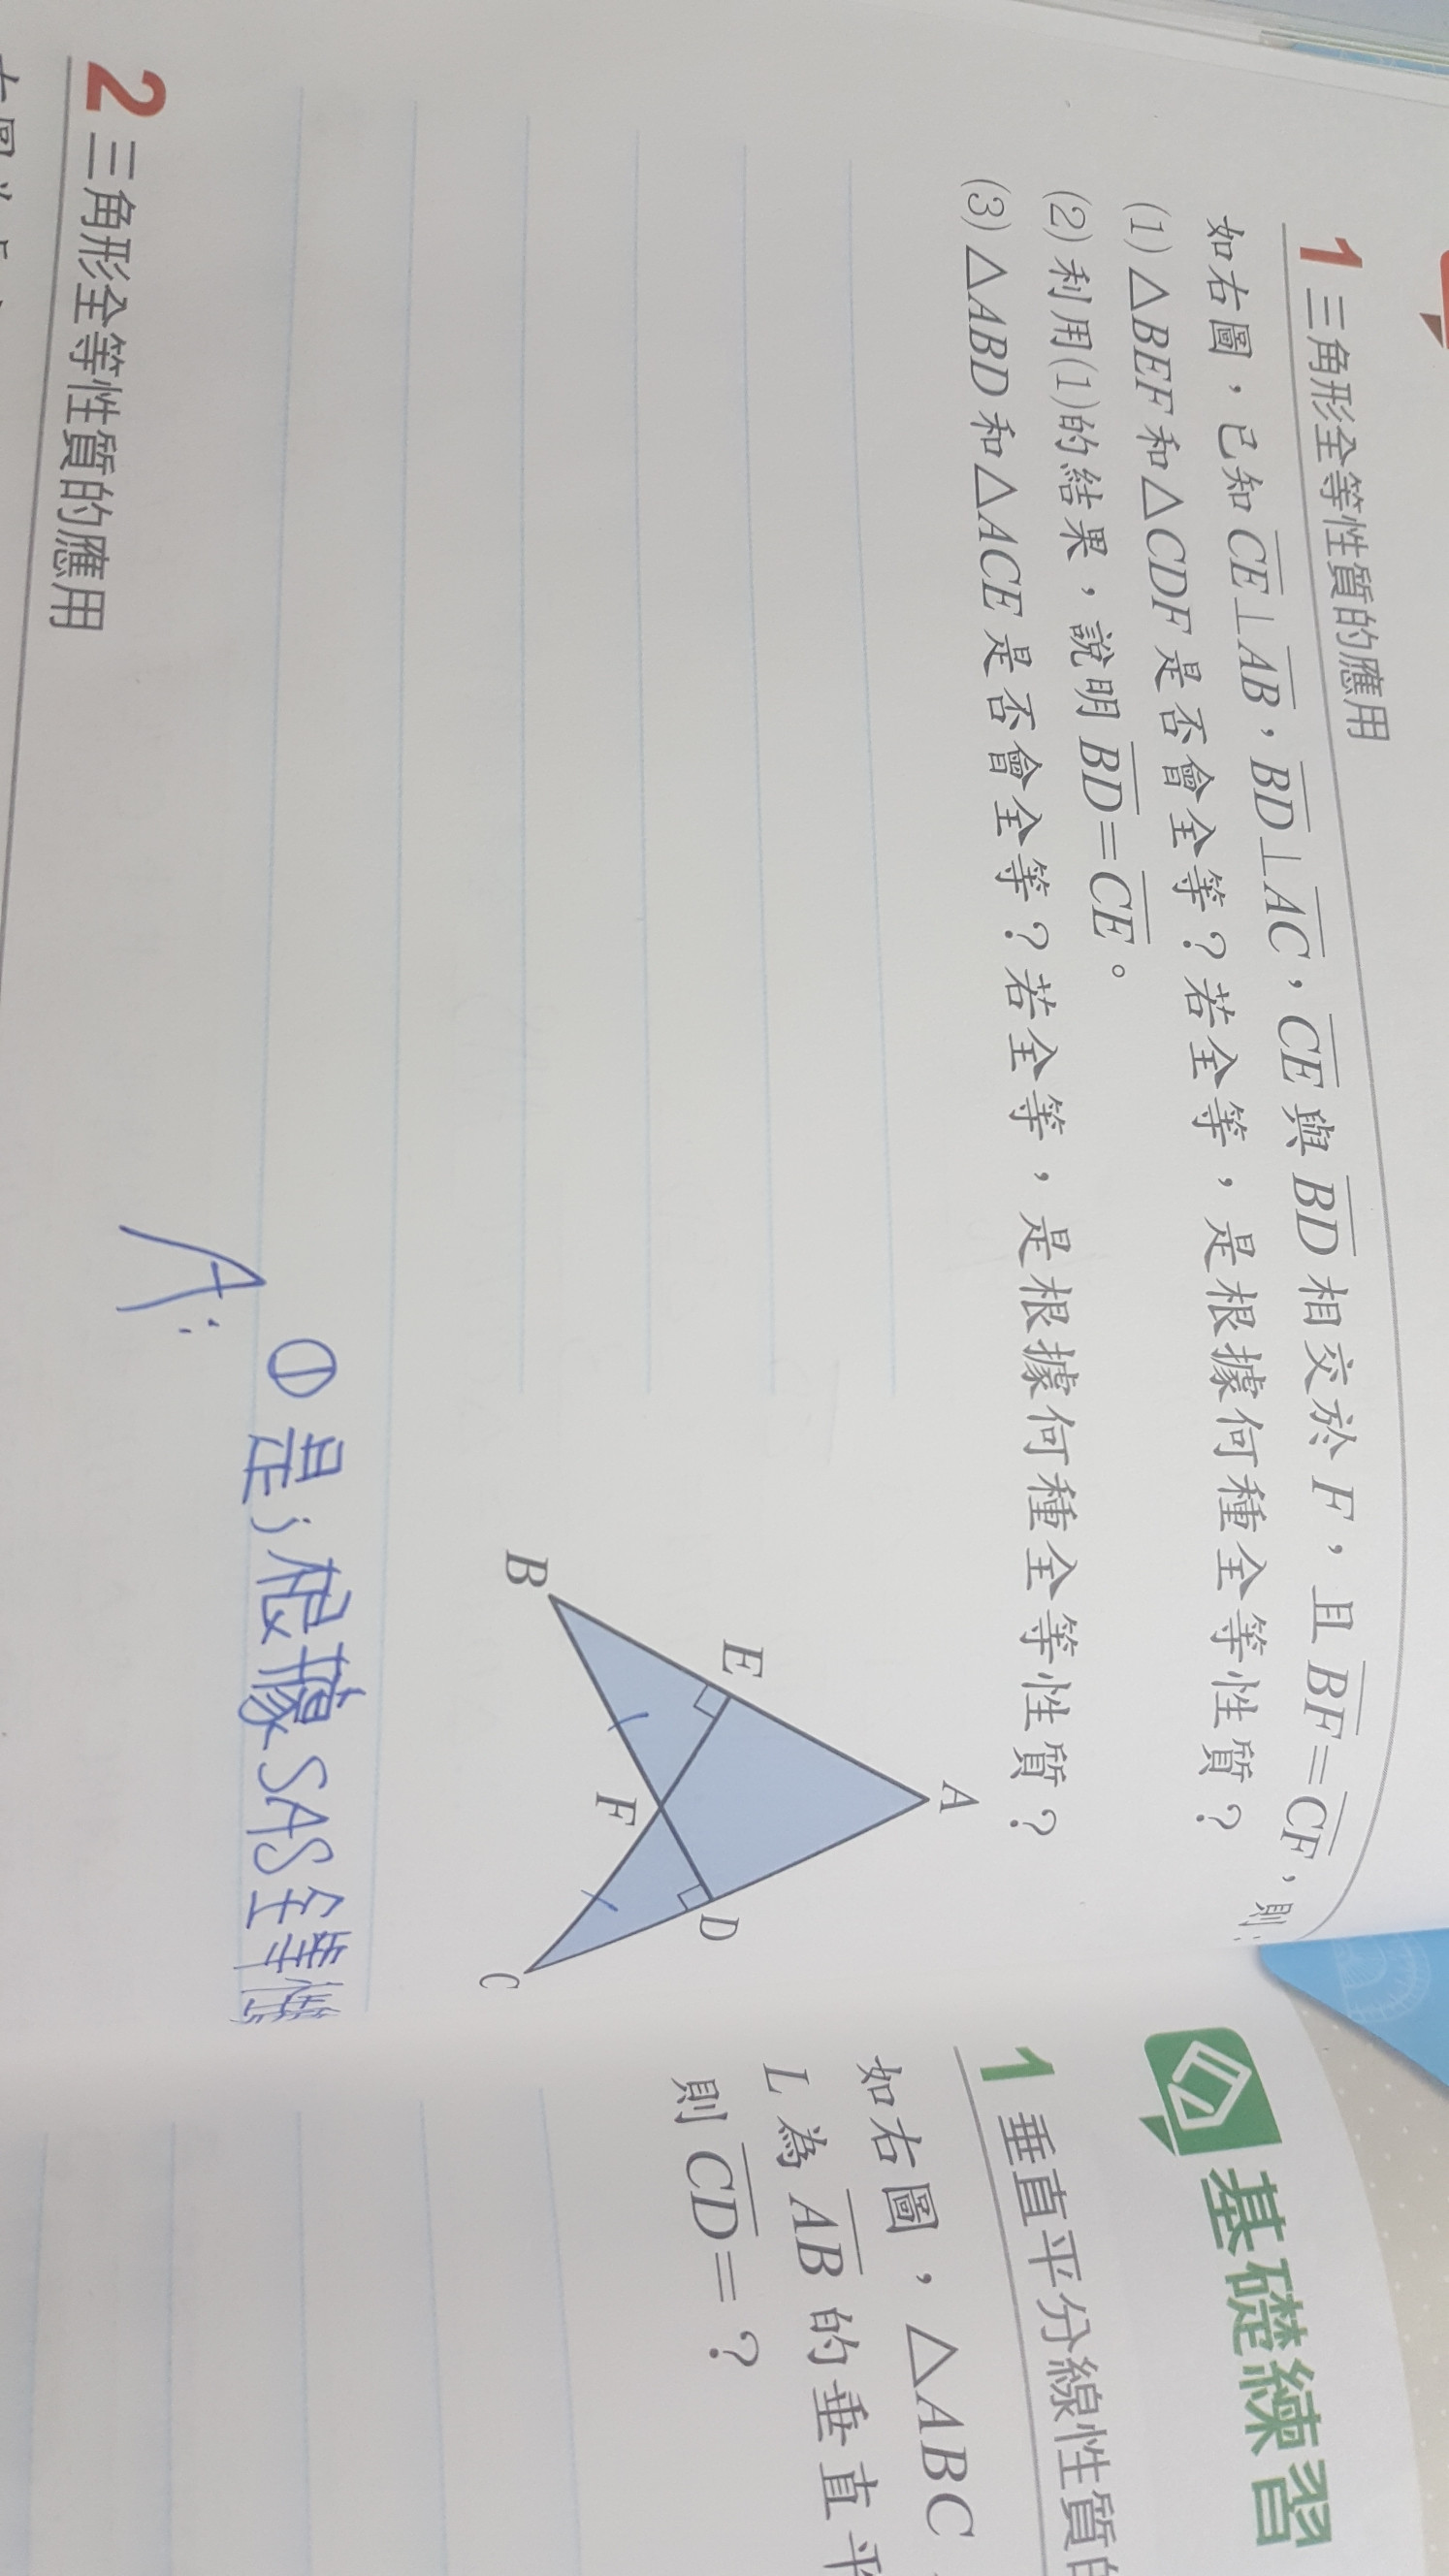 1 三角形全等性質的應用
如右圖，已知CE⊥AB，BD⊥AC，CE與BD相交於F，且BF=CF，則：
(1)△BEF和△CDF是否會全等？若全等，是根據何種全等性質？
(2)利用(1)的結果，說明BD=CE。
(3)△ABD和△ACE是否會全等？若全等，是根據何種全等性質？
A
E
D
F
B
C
A：
①是；根據SAS全等
2 三角形全等性質的應用
基礎練習
1 垂直平分線性質的
如右圖，△ABC
L為AB的垂直平
則CD=？